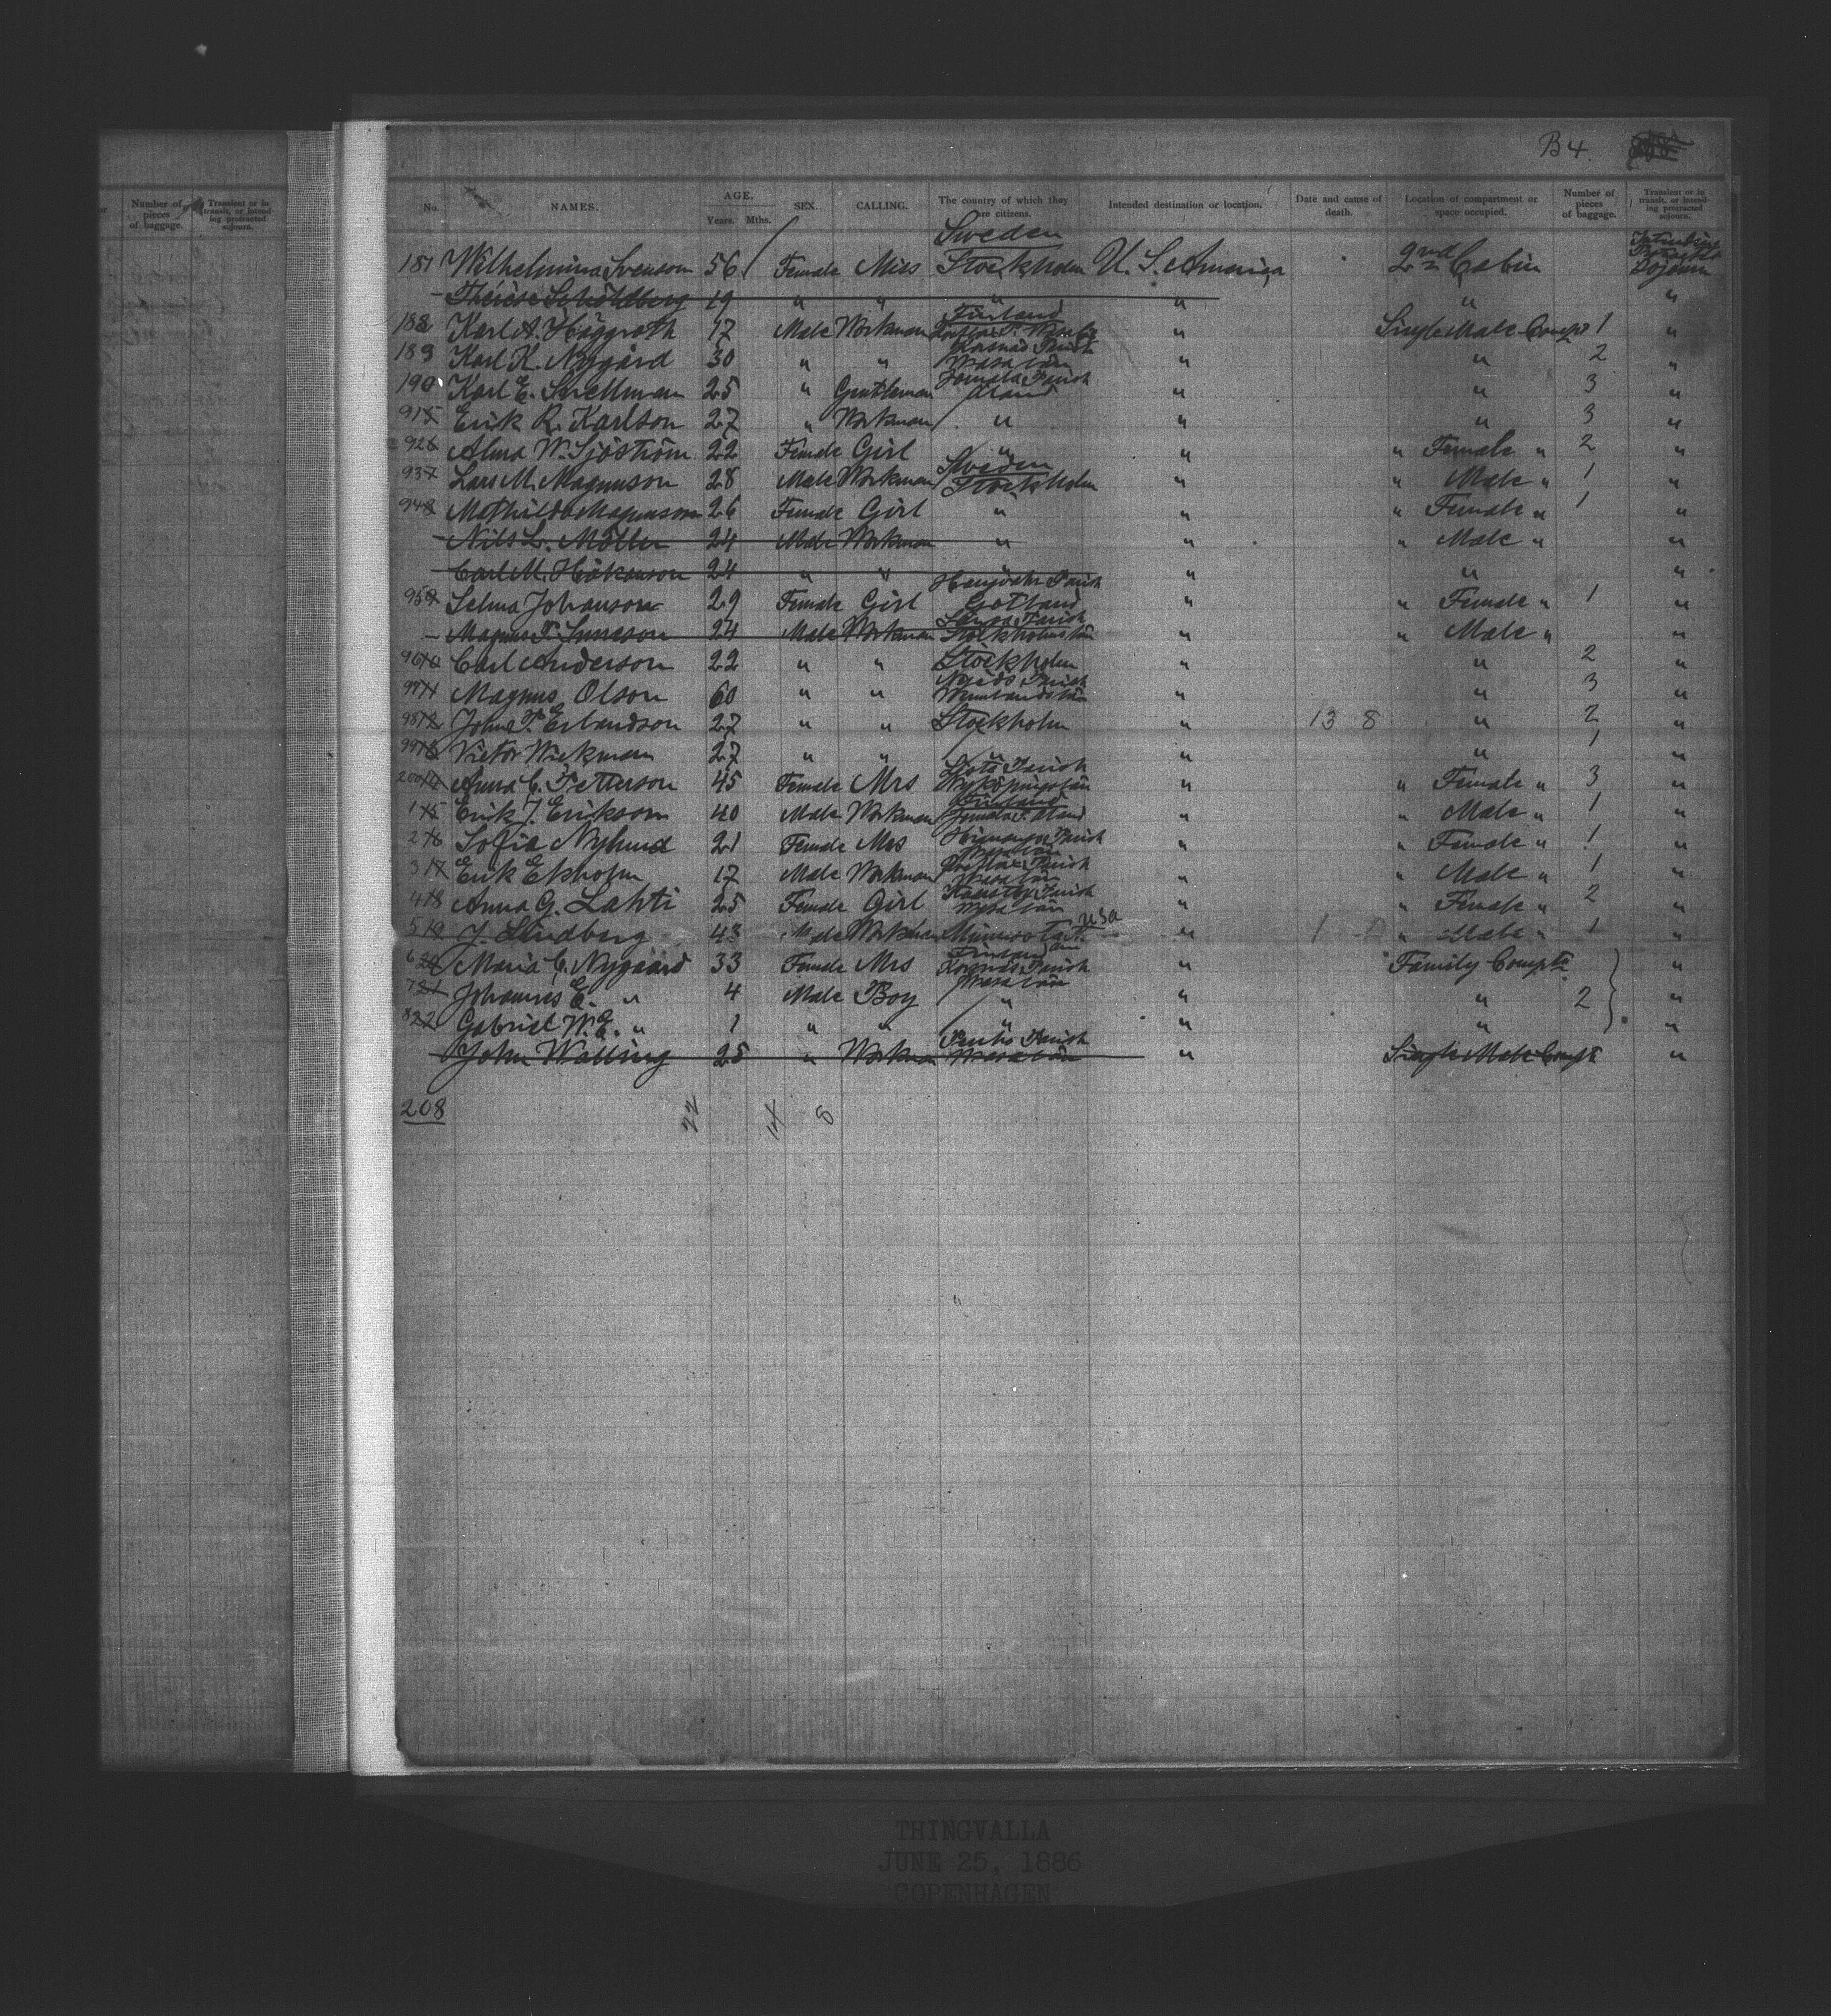 B4.
Number of pieces of baggage. Transient or in transit, or intending protracted sojourn.
No. NAMES. AGE. Years. Mths. SEX. CALLING. The country of which they are citizens. Intended destination or location. Date and cause of death. Location of compartment or space occupied. Number of pieces of baggage. Transient or in transit, or intending protracted sojourn.
Sweden
187 Wilhelmina Svenson 56 Female Miss Stockholm U. S. America 2nd Cabin
Thérèse 19 " " " " " "
Finland
188 Karl A. Häggroth 17 Male Workman " Single Male Compt 1 "
189 Karl K. Nygård 30 " " Korsnäs Parish Wasa län " " 2 "
190 Karl E. Snellman 25 " Gentleman Jomala Parish Åland " " 3 "
91 Erik R. Karlson 27 " Workman " " " 3 "
92 Alma W. Sjöström 22 Female Girl " " " Female " 2 "
Sweden
93 Lars M. Magnuson 28 Male Workman Stockholm " " Male " 1 "
94 Mathilda Magnuson 26 Female Girl " " " Female " 1 "
Nils L. Möller 24 Male Workman " " " Male " "
Carl M. Håkanson 24 " " " " "
95 Selma Johanson 29 Female Girl Parish Gotland " " Female " 1 "
Magnus 24 Male Workman Parish Stockholms län " " Male " "
96 Carl Anderson 22 " " Stockholm " " 2 "
97 Magnus Olson 60 " " Parish " " 3 "
98 John P. Erlandson 27 " " Stockholm " 13 8 " 2 "
99 Victor Wickman 27 " " " " " 1 "
200 Anna C. Petterson 45 Female Mrs Parish Nyköpings län " " Female " 3 "
Finland
1 Erik J. Erikson 40 Male Workman Jomala P. Åland " " Male " 1 "
2 Sofia Nylund 21 Female Mrs Parish Wasa län " " Female " 1 "
3 Erik Ekholm 17 Male Workman Parish Wasa län " " Male " 1 "
4 Anna G. Lahti 25 Female Girl Parish Wasa län " " Female " 2 "
5 J. Lindberg 43 Male Workman Minnesota USA " 1 " Male " 1 "
Finland
6 Maria C. Nygaard 33 Female Mrs Korsnäs Parish Wasa län " Family Compt "
7 Johannes E. " 4 Male Boy " " " 2 "
8 Gabriel W. E. " 1 " " " " " "
John Walling 25 " Workman Parish Wasa län " Single Male Compt "
208 22 14 8
THINGVALLA
JUNE 25, 1886
COPENHAGEN